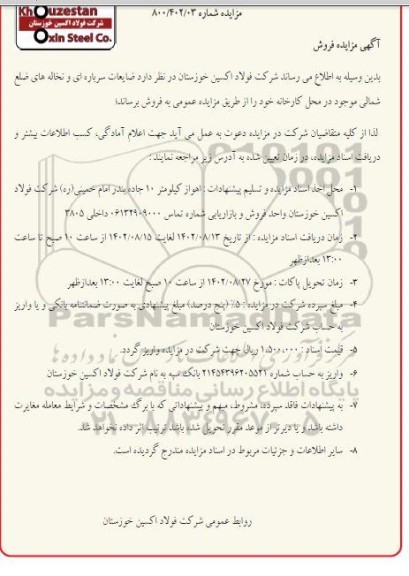 Khouzestan
شرکت فولاد اکسین خوزستان
Oxin Steel Co.
مزایده شماره ۸۰۰/۴۰۲/۰۳
آگهی مزایده فروش
بدین وسیله به اطلاع می رساند شرکت فولاد اکسین خوزستان در نظر دارد ضایعات سرباره ای و نخاله های ضلع
شمالی موجود در محل کارخانه خود را از طریق مزایده عمومی به فروش برساند؛
لذا از کلیه متقاضیان شرکت در مزایده دعوت به عمل می آید جهت اعلام آمادگی، کسب اطلاعات بیشتر و
دریافت اسناد مزایده، در زمان تعیین شده به آدرس زیر مراجعه نمایند :
۱- محل اخذ اسناد مزایده و تسلیم پیشنهادات : اهواز کیلومتر ۱۰ جاده بندر امام خمینی(ره) شرکت فولاد
اکسین خوزستان واحد فروش و بازاریابی شماره تماس ۰۶۱۳۲۹۰۹۰۰۰ داخلی ۳۸۰۵
۲- زمان دریافت اسناد مزایده : از تاریخ ۱۴۰۲/۰۸/۱۳ لغایت ۱۴۰۲/۰۸/۱۵ از ساعت ۱۰ صبح تا ساعت
۱۳:۰۰ بعدازظهر
۳- زمان تحویل پاکات : مورخ ۱۴۰۲/۰۸/۲۷ از ساعت ۱۰ صبح لغایت ۱۳:۰۰ بعدازظهر
۴- مبلغ سپرده شرکت در مزایده : ۵٪ (پنج درصد) مبلغ پیشنهادی به صورت ضمانتنامه بانکی و یا واریز
به حساب شرکت فولاد اکسین خوزستان
۵- قیمت اسناد : ۱،۵۰۰،۰۰۰ ریال جهت شرکت در مزایده واریز گردد.
۶- واریز به حساب شماره ۲۱۴۵۴۳۹۶۲۰۵۵۲۱ بانک سپه به نام شرکت فولاد اکسین خوزستان
۷- به پیشنهادات فاقد سپرده، مشروط، مبهم و پیشنهاداتی که با برگ مشخصات و شرایط معامله مغایرت
داشته باشد و یا دیرتر از موعد مقرر تحویل شده باشد ترتیب اثر داده نخواهد شد.
۸- سایر اطلاعات و جزئیات مربوط در اسناد مزایده مندرج گردیده است.
روابط عمومی شرکت فولاد اکسین خوزستان
ParsNamadData
پایگاه اطلاع رسانی مناقصه و مزایده